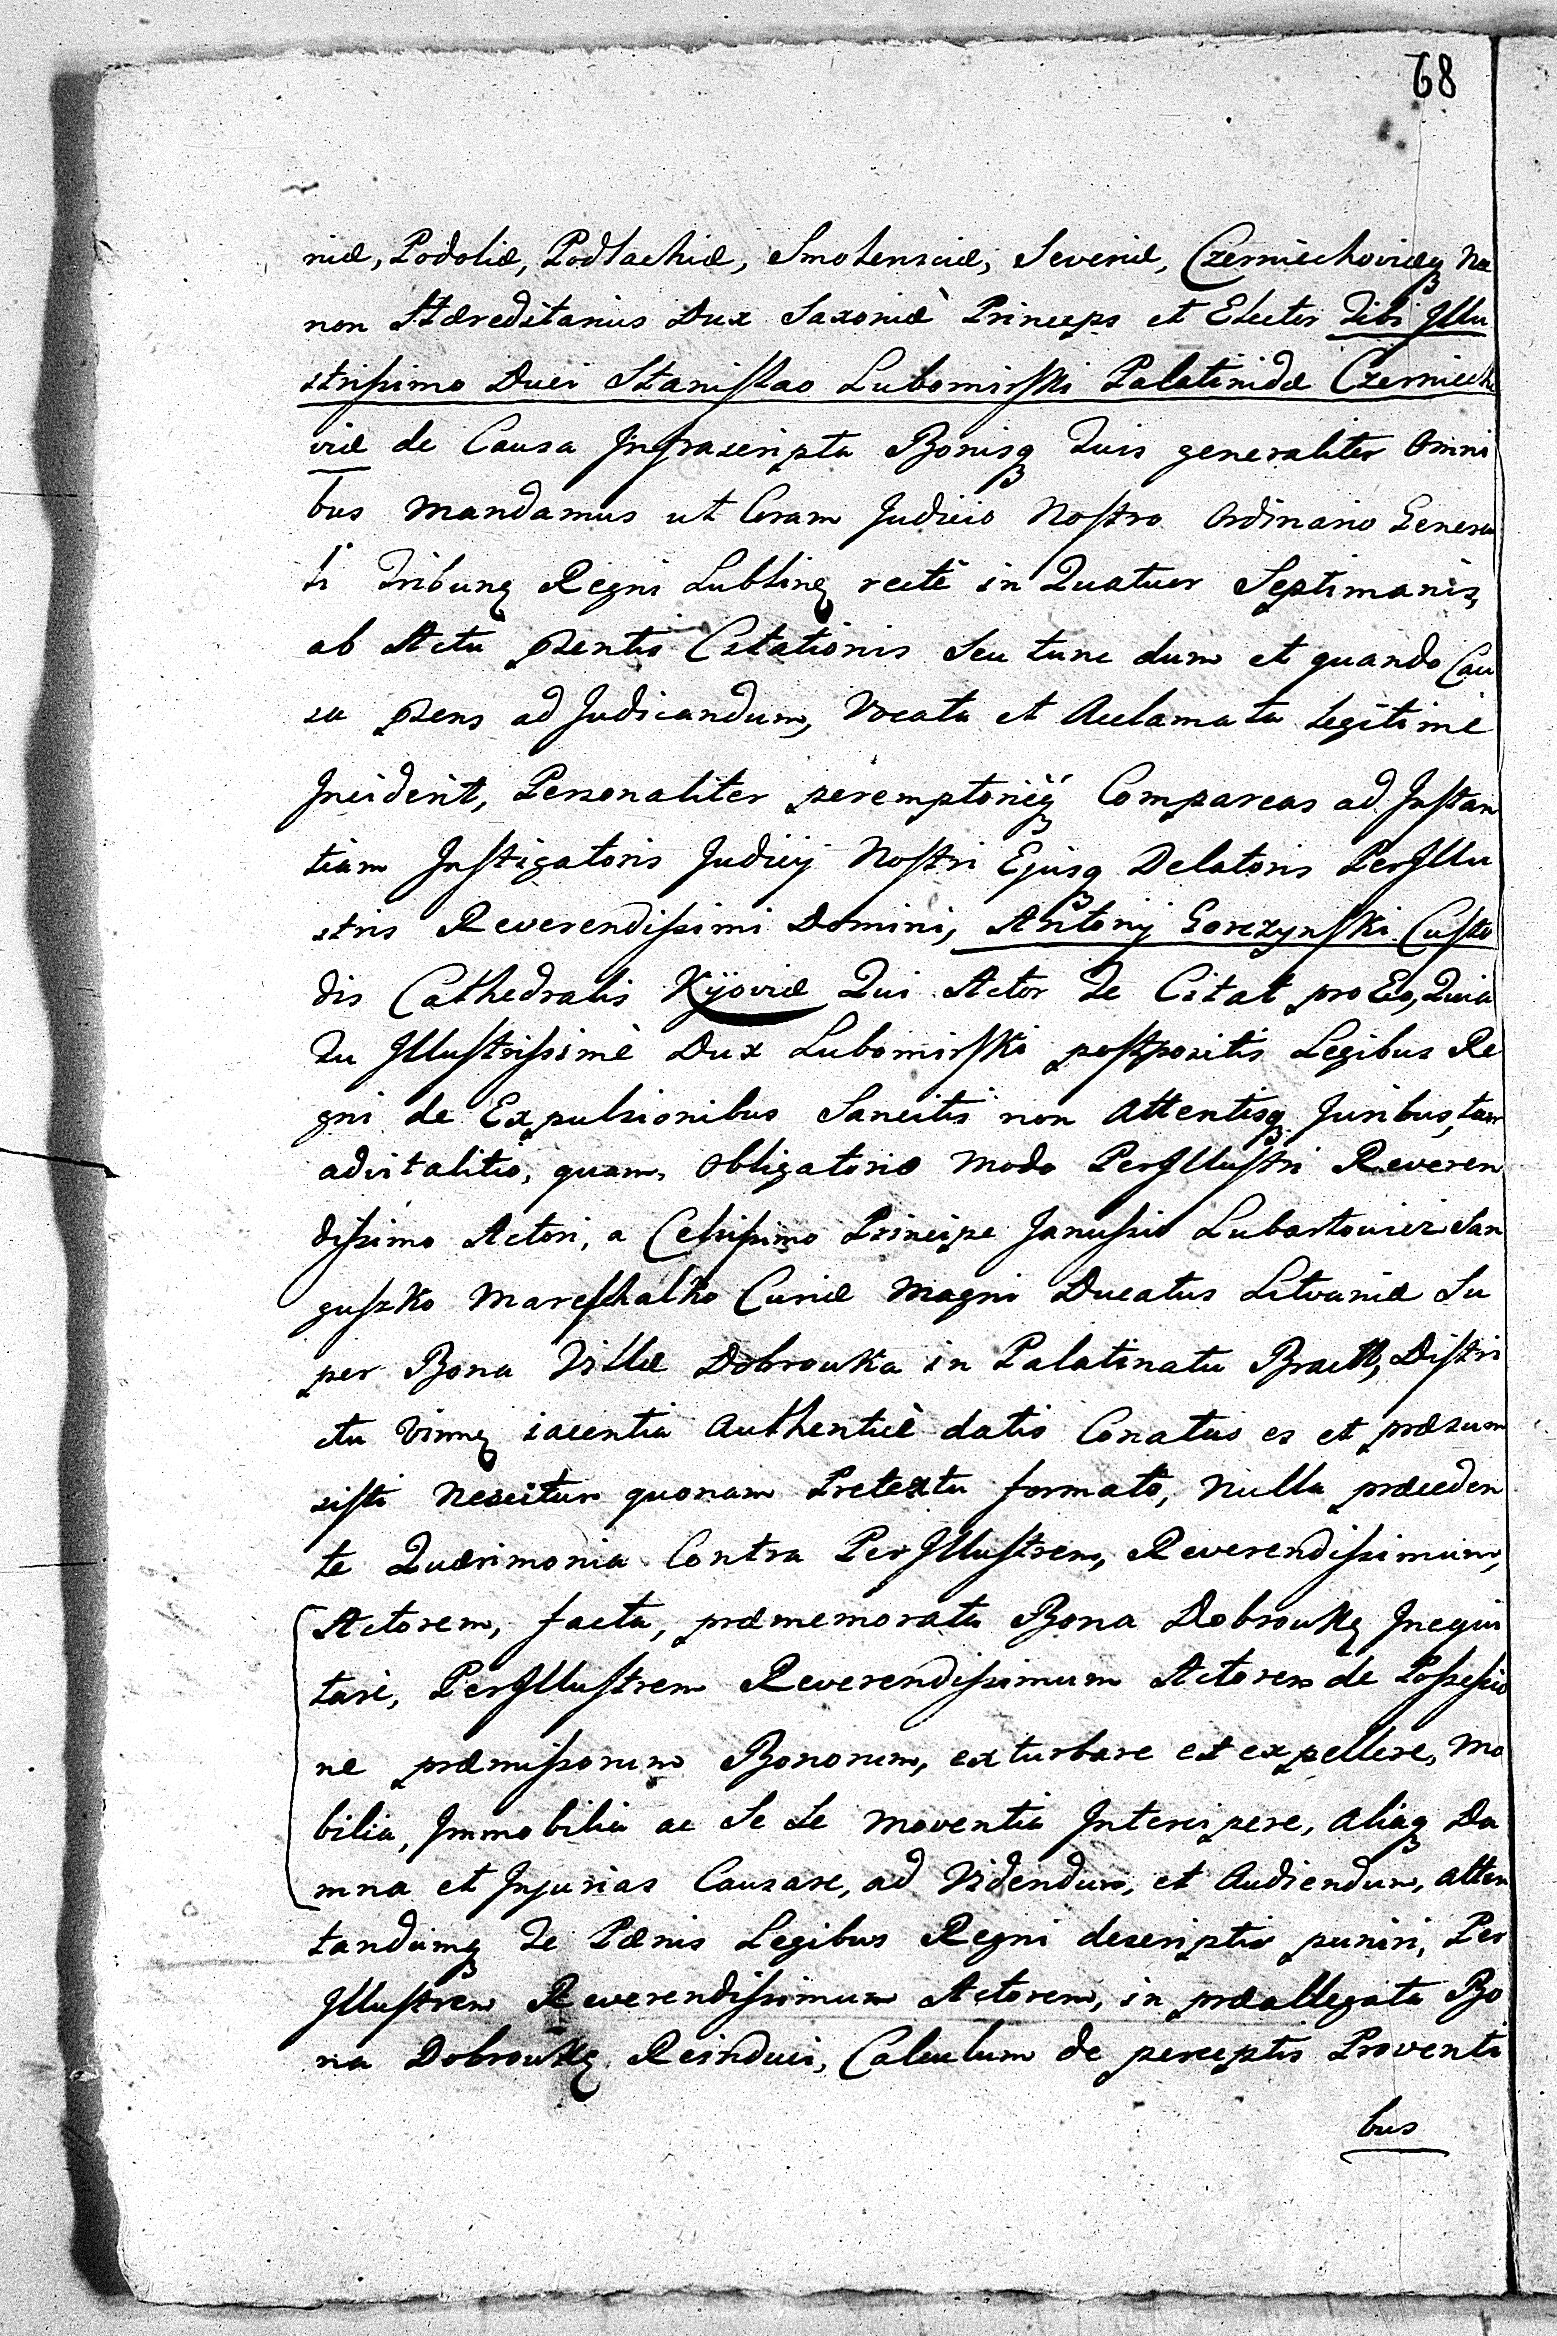 68
niæ, Podoliæ, Podlachiæ, Smolensciæ, Severiæ, Czerniechoviæq̃ Nec
non Hæreditarius Dux Saxoniæ Princeps et Elector Tibi Illu
strissimo Duci Stanislao Lubomirski Palatinidæ Czerniecho
viæ de Causa Infrascripta Bonisq̃ Tuis generaliter Omni
bus Mandamus ut Coram Judicio Nostro Ordinario Genera
li Tribunꝫ Regni Lublinꝫ rectè in Quatuor Septimanis,
ab Actu pñsentis Citationis Seu tunc dum et quando Cau
sa pñsens ad Judicandum, Vocata et Acclamata legitimè
Inciderit, Personaliter peremptoriéq̃ Compareas ad Instan
tiam Instigatoris Judicij Nostri Ejusq̃ Delatoris PerIllu
stris Reverendissimi Domini, Antonij Gorczynski Custo
dis Cathedralis Kijoviæ Qui Actor Te Citat pro Eo, Quia
Tu Illustrissimè Dux Lubomirski postpositis Legibus Re
gni de Expulsionibus Sancitis non Attentisq̃ Juribus, tam
advitalitio, quam, Obligatorio Modo PerIllustri Reveren
dissimo Actori, a Celsissimo Principe Janussio Lubartowicz San
guszko Mareschalko Curiæ Magni Ducatus Litvaniæ Su
per Bona Villæ Dobrowka in Palatinatu Bracłł, Distri
ctu Vinnꝫ iacentia Authenticè datis Conatus es et præsum
sisti Nescitur quonam Pretextu formato, Nulla præceden
te Quærimonia Contra PerIllustrem, Reverendissimum,
Actorem, facta, præmemorata Bona Dobrowkꝫ Inequi
tare, PerIllustrem Reverendissimum Actorem de Possessio
ne præmissorum Bonorum, exturbare et expellere, Mo
bilia, Immobilia ac Se Se Moventia Intercipere, aliaq̃ Da
mna et Injurias Causare, ad Videndum, et Audiendum, atten
tandumq̃ Te Pænis Legibus Regni descriptis puniri, Per
Illustrem Reverendissimum Actorem, in præallegata Bo
na Dobrowkꝫ Reinduci, Calculum de perceptis Proventi
bus